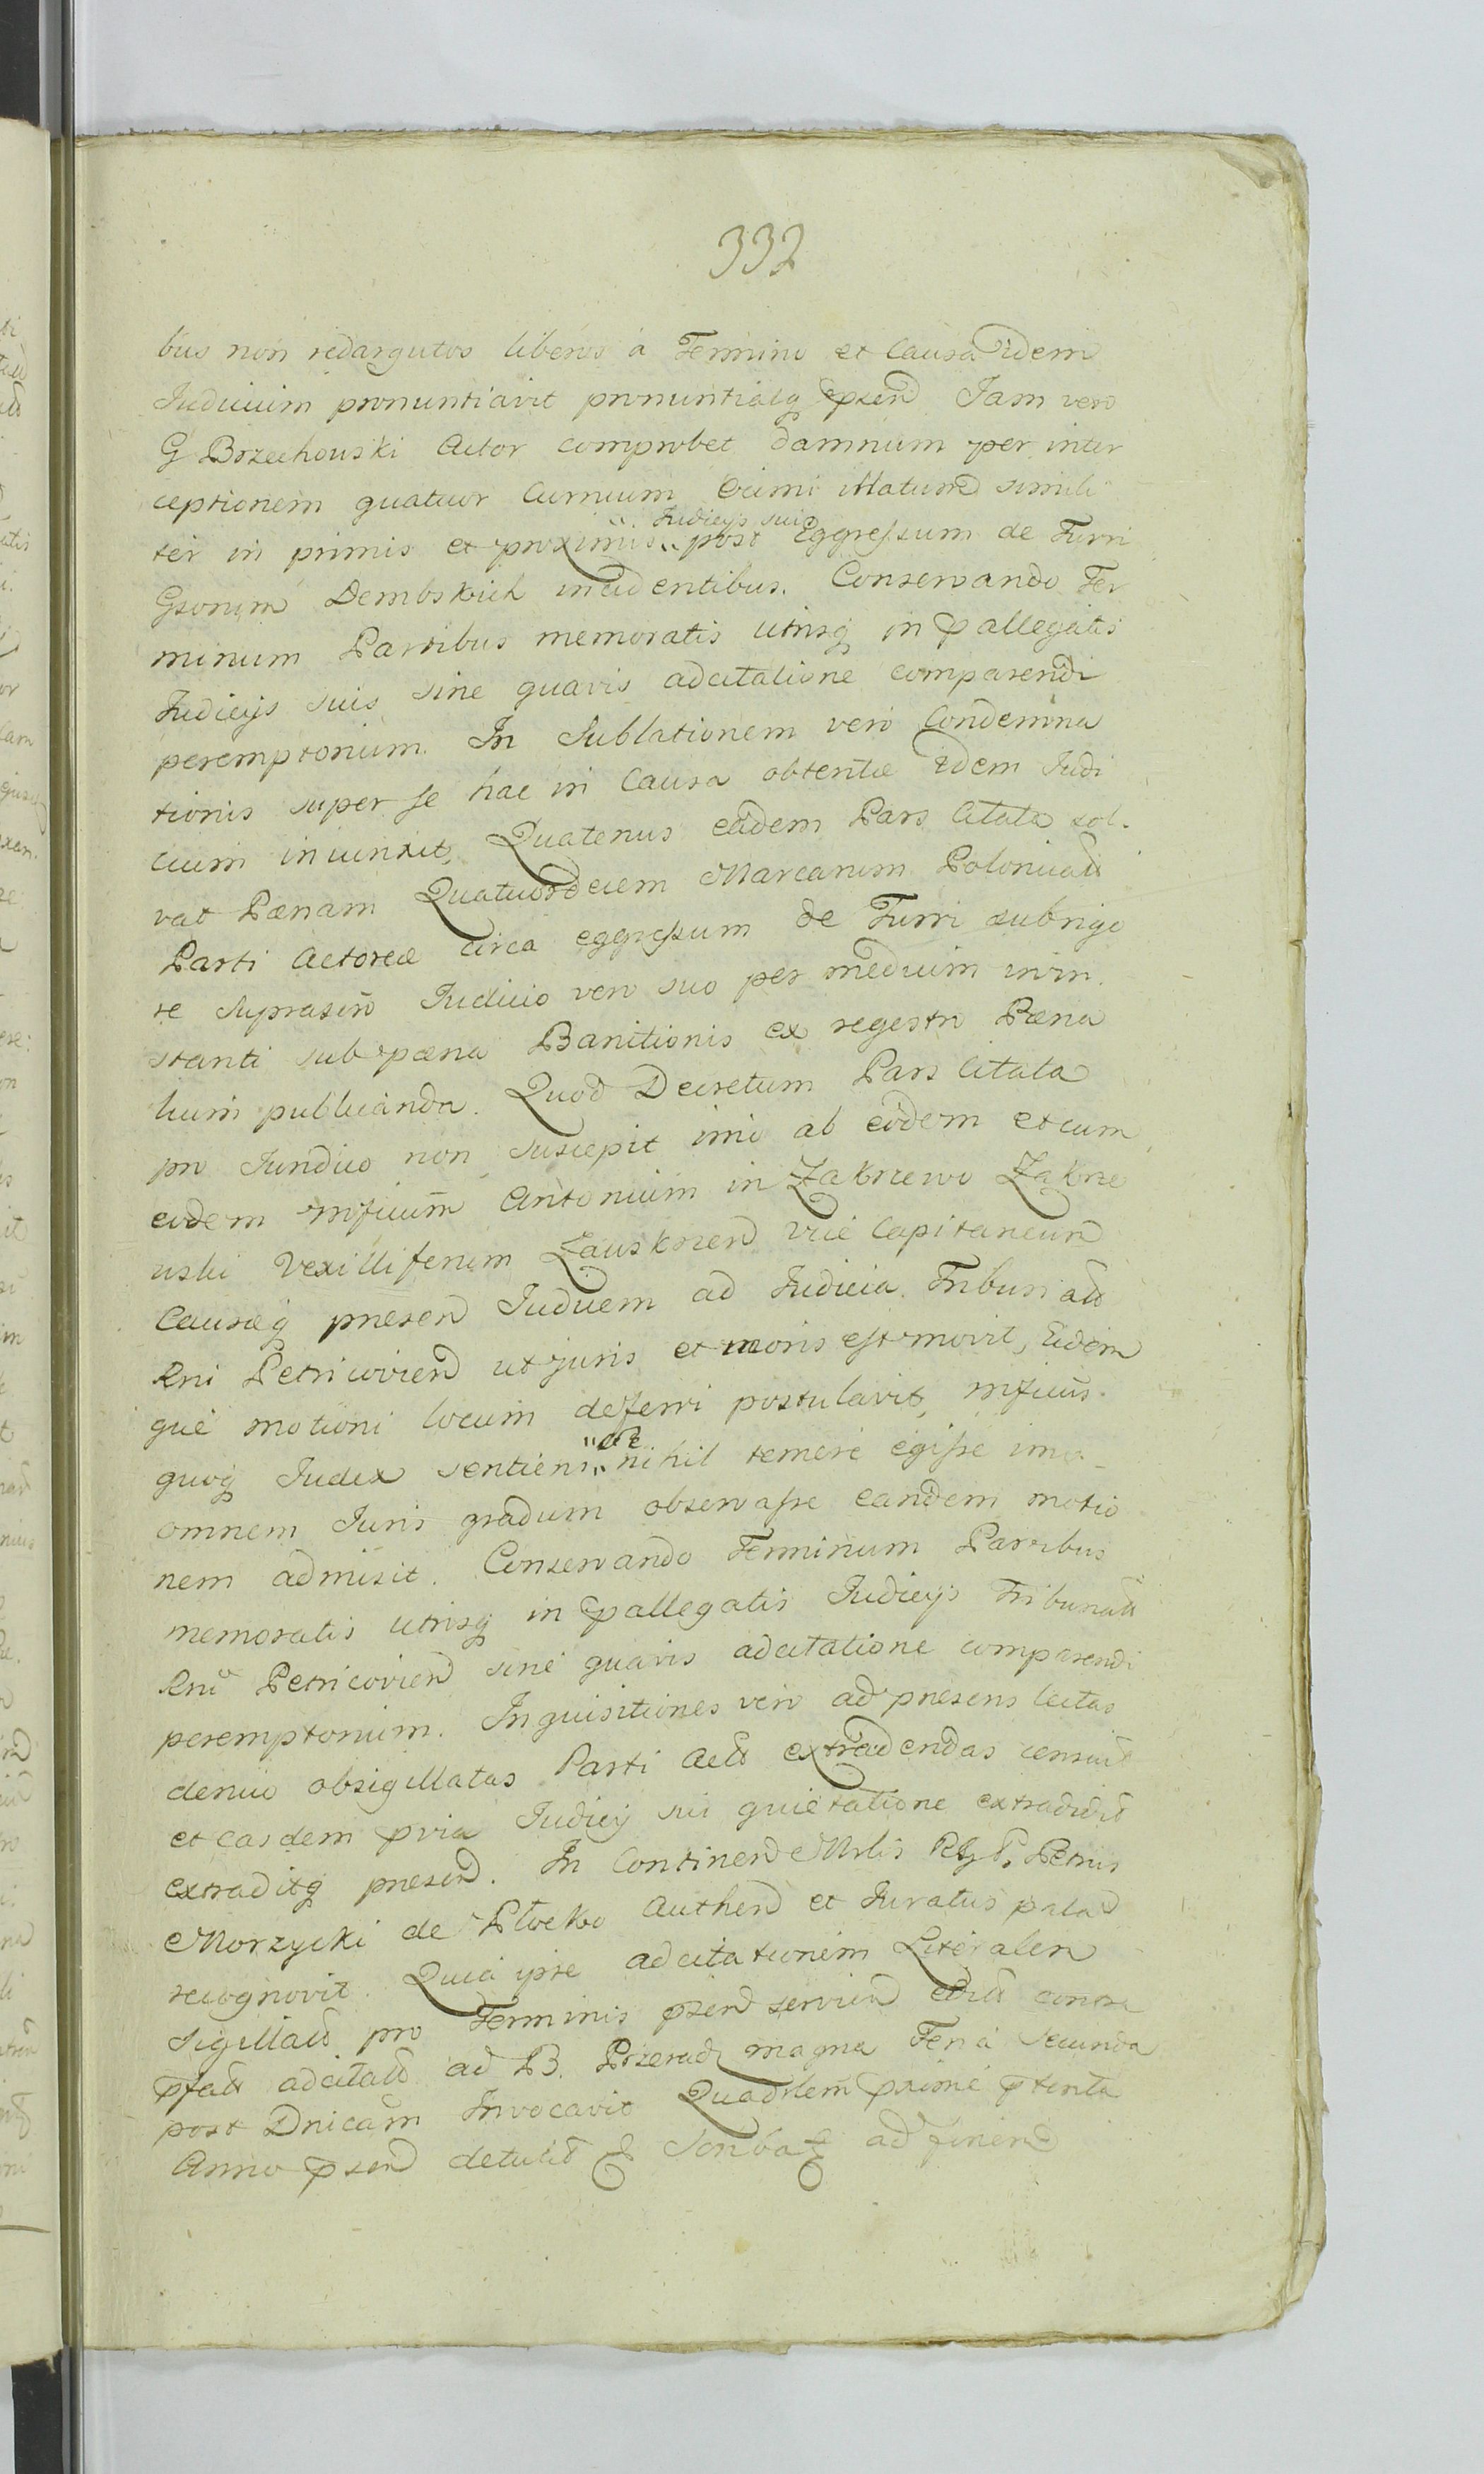 332
bus non redargutos liberos a Termino et Causa idem
Judicium pronuntiavit pronuntiatq psend Jam vero
G Brzechowski Actor comprobet damnum per inter
ceptionem quatuor Curruum Grimi illatum simili
ter in primis et proximis Judicys suis post Eggressum de Turri
Gsorum Dembskich incidentibus. Conservando Ter
minum Partibus memoratis utrisq in pallegatis
Judicys suis sine quavis adcitatione comparendi
peremptorium. In Sublationem vero Condemna
tionis super se hac in Causa obtentæ idem Judi
cium iniunxit, Quatenus eadem Pars Citata sol.
vat Pænam Quatuordecim Marcarum Polonicali
Parti Actoreæ circa eggressum de Turri subrigo
re Suprascrip Judicio vero suo per medium inin
stanti sub pæna Banitionis ex regestro Pæna
lium publicanda. Quod Decretum Pars Citata
pro Jundico non suscepit imo ab eodem et cum
eodem mficum Antonium in Zakrzewo Zakrze
wski Vexilliferum Zauskrzen Vice Capitaneum
Causæq presen Judicem ad Judicia Tribunalis
Rni Petricovien ut juris et moris est movit, Eidem
que motioni locum deferri postulavit, mficus
quoq Judex sentiens se nihil temere egisse imo
omnem Juris gradum observasse eandem motio
nem admisit. Conservando Terminum Partibus
memoratis utrisq in pallegatis Judicys Tribunalis
Rni Petricovien sine quavis adcitatione comparendi
peremptorium. Inquisitiones vero ad presens lectas
denuo obsigillatas Parti Acto extradendas censuit
et easdem pvia Judicy sui quietatione extradidit
extraditq presen. In Continen Mrlis Petrus
Morzycki de Płocko Authen et Juratus palam
recognovit. Quia ipse adcitationem Literalem
Sigillat pro Terminis psen servien contra
pfat adcitat ad B. Przerad magna Feria Secunda
post Dnicam Invocavit Quadrlem proxime pterita
Anno psen detulit